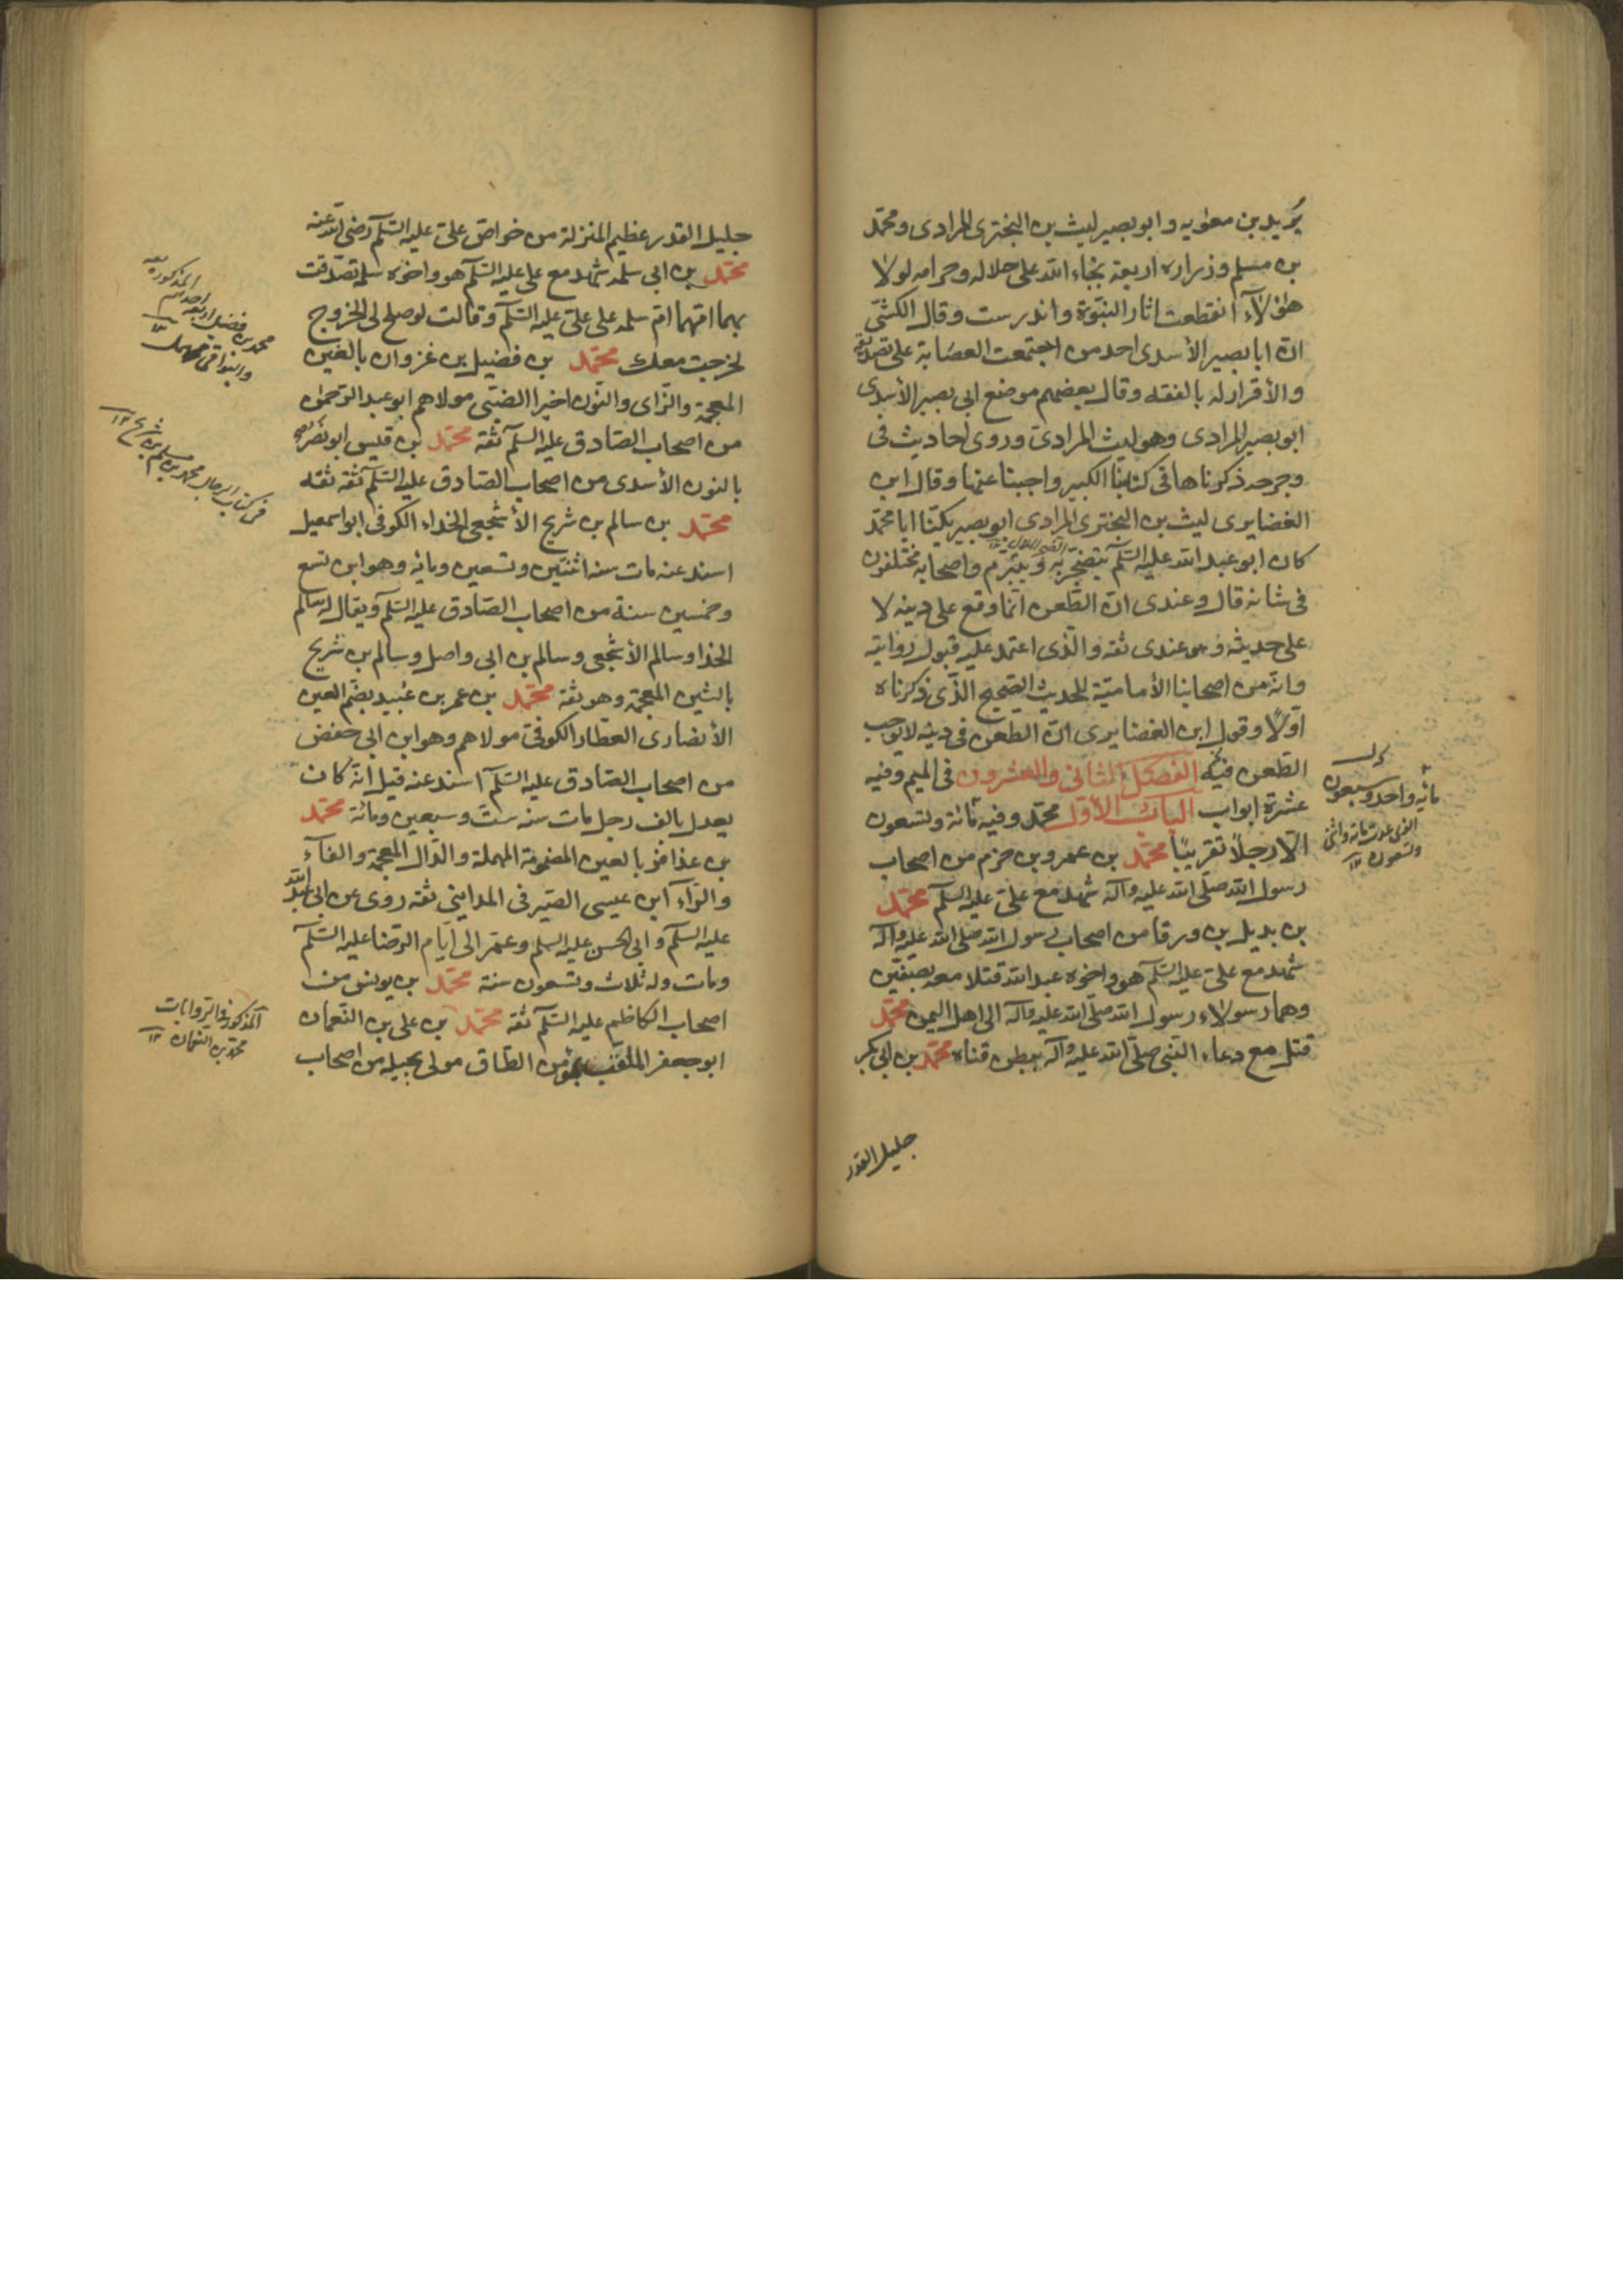 بُريد بن معويه و ابو بصير ليث بن البختري المرادى و محمّد
بن مسلم و زراره اربعة نجباء الله على حلاله وحرامه لولا
هؤلآء انقطعت اثار النبّوة و اندرست و قال الكشّى
انّ ابا بصير الأسدى احد من اجتمعت العصابة على تصديقه
والأقرار له بالفقه وقال بعضهم موضع ابى بصير الأسدى
ابو بصير المرادى وهو ليث المرادى وروى احاديث فى
جرحه ذكرناها فى كتابنا الكبير واجبنا عنها وقال ابن
الغضايرى ليث بن البختري المرادى ابو بصير يكنّا ابا محمّد
كان ابو عبد الله عليه السّلم يتضجّر به ويتبّرم واصحابه مختلفون
فى شانه قال وعندى انّ الطّعن انّما وقع على دينه لا
على حديثه و هو عندى ثقه والّذى اعتمد عليه قبول روايته
وانّه من اصحابنا الأماميّة للحديث الصّحيح الّذى ذكرناه
اوّلاً وقول ابن الغضايرى انّ الطعن فى دينه لا يوجب
الطّعن فيه الفصل الثانى والعشرون فى الميم وفيه
عشرة ابواب الباب الأوّل محمّد وفيه مائة وتسعون
الّا رجلاً تقريبًا محمّد بن عمرو بن حزم من اصحاب
رسول الله صلّى الله عليه وآله شهد مع علىّ عليه السّلم محمّد
بن بديل بن ورقا من اصحاب رسول الله صلّى الله عليه وآله
شهد مع علىّ عليه السّلم هو واخوه عبد الله قتلا معه بصفّين
وهما رسولاء رسول الله صلّى الله عليه وآله الى اهل اليمن محمّد
قتل مع دعاء النّبى صلّى الله عليه وآله ببطن قناه محمّد بن ابى بكر
جليل القدر
مائه واحد وسبعون
الذى عدت مائة واثنى
وتسعون ١٢
جليل القدر عظيم المنزلة من خواصّ علىّ عليه السّلم رضى الله عنه
محمّد بن ابى سلمه شهد مع على عليه السّلم هو واخوه سلمه تصدّقت
بهما امّهما امّ سلمه على علىّ عليه السّلم وقالت لو صلح لى الخروج
لخرجت معك محمّد بن فضيل بن غزوان بالغين
المعجمة والزّاى والنّون اخيرا الضّبّى مولاهم ابو عبد الرّحمن
من اصحاب الصّادق عليه السّلم ثقة محمّد بن قيس ابو نصر
بالنون الأسدى من اصحاب الصّادق عليه السّلم ثقة ثقه
محمّد بن سالم بن شريح الأشجعى الحذاء الكوفى ابو اسمعيل
اسند عنه مات سنه اثنتين وتسعين ومايه وهو ابن تسع
وخمسين سنة من اصحاب الصّادق عليه السّلم ويقال له سالم
الحذا وسالم الأشجعى وسالم بن ابى واصل وسالم بن شريح
بالشين المعجمة وهو ثقة محمّد بن عمر بن عُبيد بضّم العين
الأنصارى العطّار الكوفىّ مولاهم وهو ابن ابى حفص
من اصحاب الصّادق عليه السّلم اسند عنه قيل انّه كان
يعدل بالف رجل مات سنه ستّ وسبعين ومائة محمّد
بن عذافر بالعين المضمومة المهملة والذّال المعجمة والفآء
والرّآء ابن عيسى الصّيرفى المداينى ثقه روى عن ابى عبد الله
عليه السّلم وابى الحسن عليه السلم وعمّر الى ايّام الرّضا عليه السّلم
ومات وله ثلاث وتسعون سنة محمّد بن يونس من
اصحاب الكاظم عليه السّلم ثقة محمّد بن على بن النّعمان
ابو جعفر الملقّب بمؤمن الطّاق مولى بجيله من اصحاب
محمد بن فضيل اربعة احدهم
والبواقى مجهول ١٢
فى كتاب الرجال محمد بن سالم بن شريح ١٢
المذكور فى الروايات
محمّد بن النعمان ١٢